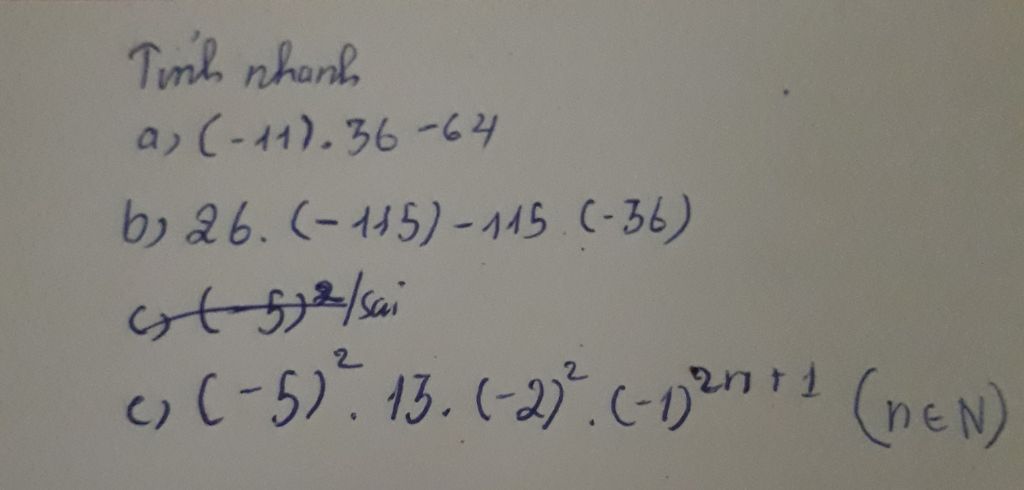 Tính nhanh
a, (-11). 36 -64
b, 26. (-115) -115. (-36)
c, (-5)²/sai
c, (-5)². 13. (-2)². (-1)²ⁿ⁺¹ (n∈N)